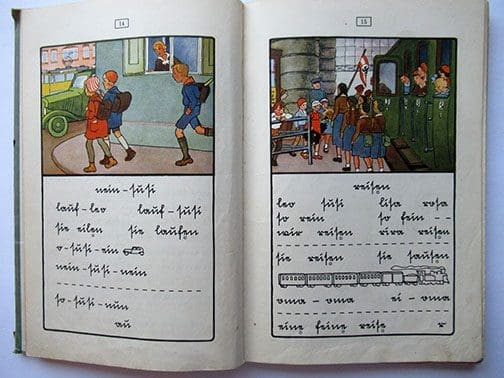 14
nein-susi
lauf-leo lauf-susi
sie eilen sie laufen
o-susi-ein
nein-susi-nein
so-susi-nun
au
15
reisen
leo susi lisa rosa
so rein so fein --
wir reisen rira reisen
sie reisen sie sausen
oma-oma ei-oma
eine feine reise r